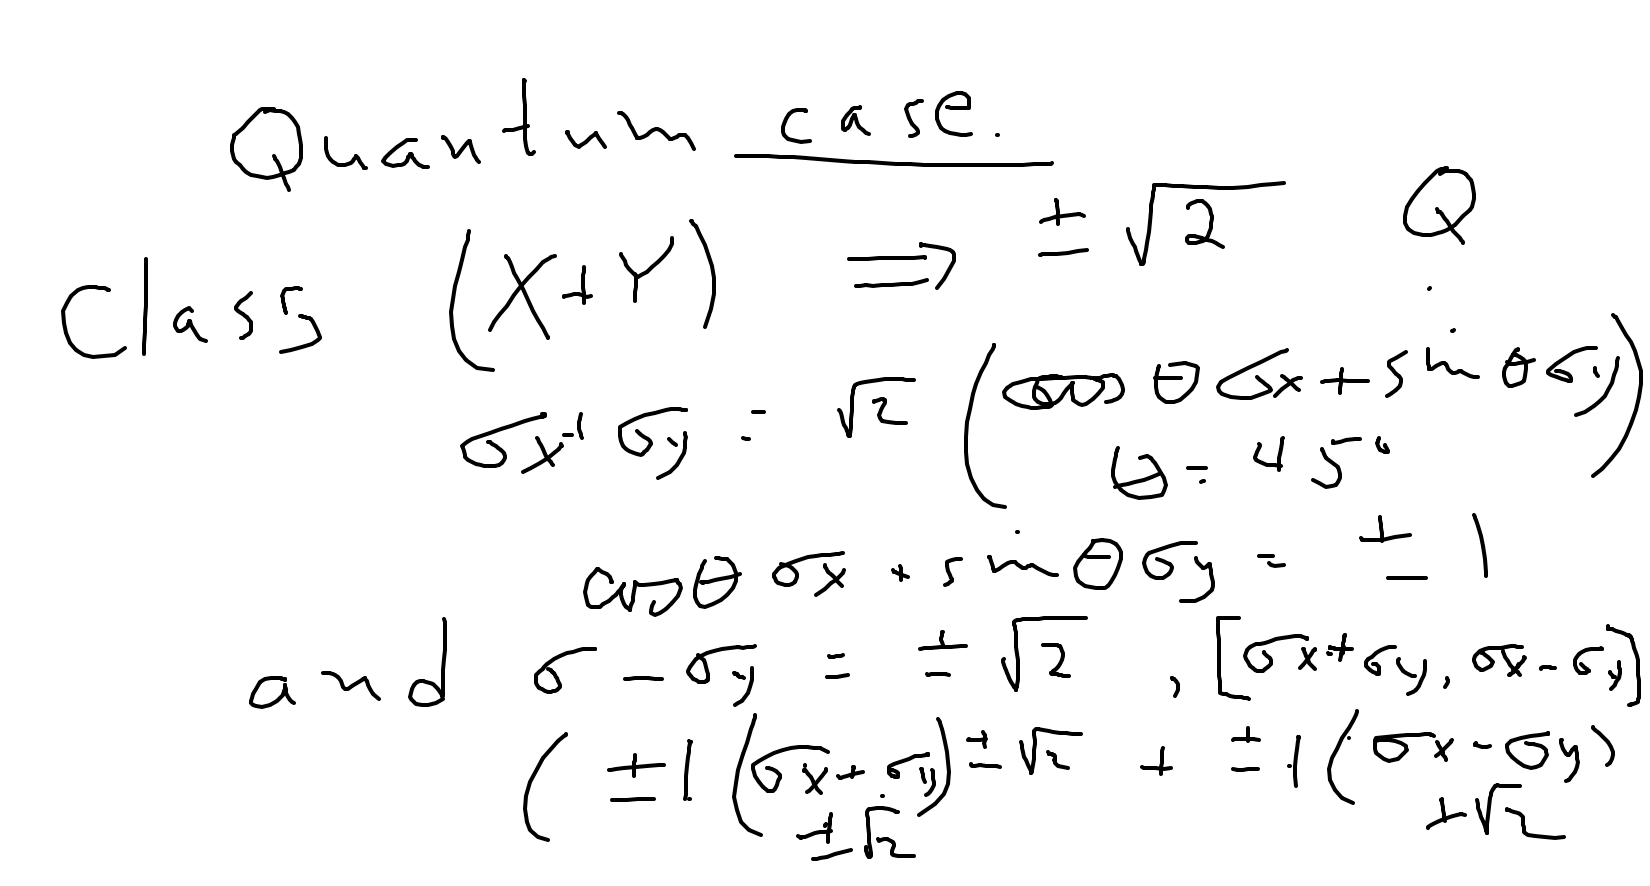 Quantum case.
Class (X+Y) ⇒ ±√2 Q
σx+σy = √2 (cosθ σx + sinθ σy)
θ = 45°
cosθ σx + sinθ σy = ±1
and σ - σy = ±√2 , [σx+σy, σx-σy]
( ±1 (σx+σy) ±√2 + ±1 (σx-σy)
±√2 ±√2